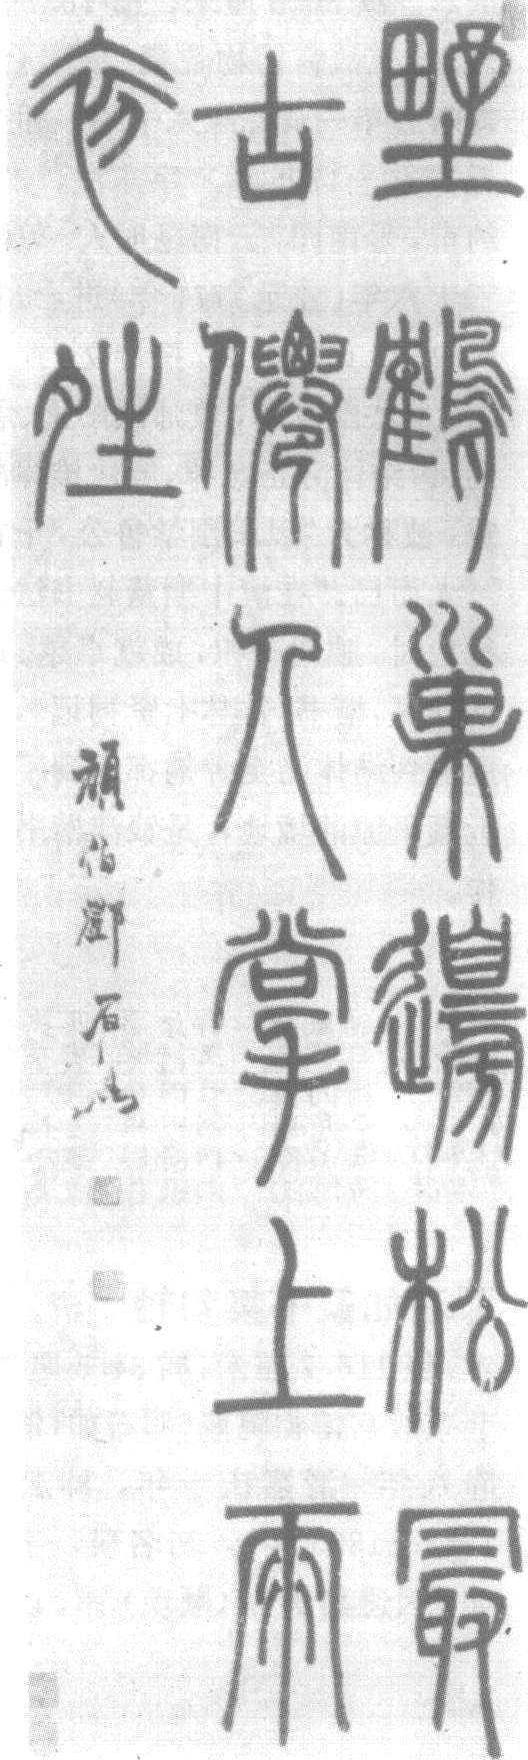 野鶴巢邊松最
古僊人掌上雨
初晴
頑伯鄧石如